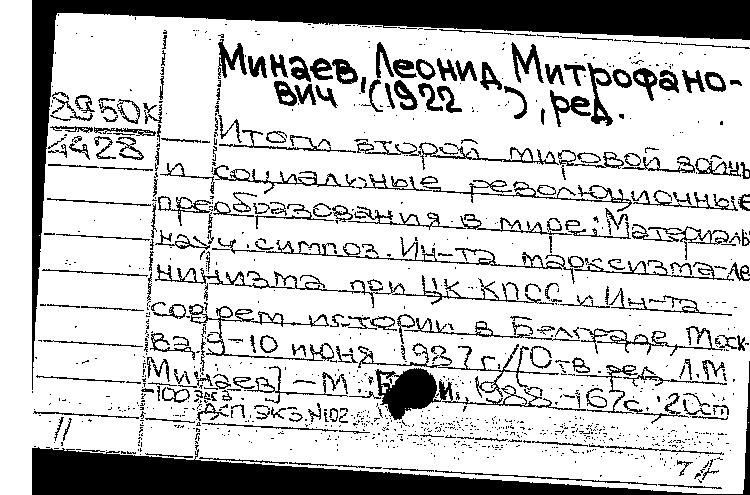 Минаев, Леонид Митрофано-
вич (1922 ), ред.
8950К
4428
Итоги второй мировой войны
и социальные революционные
преобразования в мире: Материалы
науч. симпоз. Ин-та марксизма-ле
нинизма при ЦК КПСС и Ин-та
соврем. истории в Белграде, Моск-
ва, 9-10 июня 1987 г. / [Отв. ред. Л.М.
Минаев] - М.: 1988. - 167с.; 20см
-100 экз
ДСП. ЭКЗ. №102
11